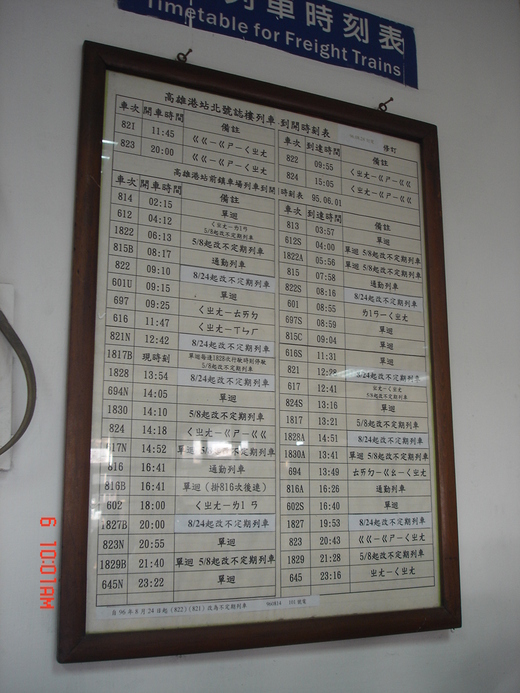 列車時刻表
Timetable for Freight Trains
高雄港站北號誌樓列車 到開時刻表 修訂
車次 開車時間 備註 車次 到達時間 備註
821 11:45 ㄍㄍ－ㄍㄕ－ㄑㄓㄤ 822 09:55 ㄑㄓㄤ－ㄍㄕ－ㄍㄍ
823 20:00 ㄍㄍ－ㄍㄕ－ㄑㄓㄤ 824 15:05 ㄑㄓㄤ－ㄍㄕ－ㄍㄍ
高雄港站前鎮車場列車到開時刻表 95.06.01
車次 開車時間 備註 車次 到達時間 備註
814 02:15 單迴 813 03:57
612 04:12 ㄑㄓㄤ－ㄌ1ㄢ 612S 04:00 單迴 5/8起改不定期列車
1822 06:13 5/8起改不定期列車 1822A 05:56 單迴 5/8起改不定期列車
815B 08:17 通勤列車 815 07:58 通勤列車
822 09:10 8/24起改不定期列車 822S 08:16 8/24起改不定期列車
601U 09:15 單迴 601 08:55 ㄌ1ㄢ－ㄑㄓㄤ
697 09:25 ㄑㄓㄤ－ㄊㄞㄉ 697S 08:59 單迴
616 11:47 ㄑㄓㄤ－ㄒㄣㄏ 815C 09:04 單迴
821N 12:42 8/24起改不定期列車 616S 11:31 單迴
1817B 現時刻 單迴每逢1828次行駛時刻停駛 5/8起改不定期列車 821 12:28 8/24起改不定期列車
1828 13:54 8/24起改不定期列車 617 12:41
694N 14:05 單迴 824S 13:16 單迴
1830 14:10 5/8起改不定期列車 1817 13:21 5/8起改不定期列車
824 14:18 ㄑㄓㄤ－ㄍㄕ－ㄍㄍ 1828A 14:51 8/24起改不定期列車
617N 14:52 單迴 5/8起改不定期列車 1830A 13:41 單迴 5/8起改不定期列車
816 16:41 通勤列車 694 13:49 ㄊㄞㄉ－ㄓ－ㄑㄓㄤ
816B 16:41 單迴（掛816次後進） 816A 16:26 通勤列車
602 18:00 ㄑㄓㄤ－ㄌ1ㄢ 602S 16:40 單迴
1827B 20:00 8/24起改不定期列車 1827 19:53 8/24起改不定期列車
823N 20:55 單迴 823 20:43 ㄍㄍ－ㄍㄕ－ㄑㄓㄤ
1829B 21:40 單迴 5/8起改不定期列車 1829 21:28 5/8起改不定期列車
645N 23:22 單迴 645 23:16 ㄓㄤ－ㄑㄓㄤ
自96年8月24日起（822）（821）改為不定期列車 960814
6 10:01AM